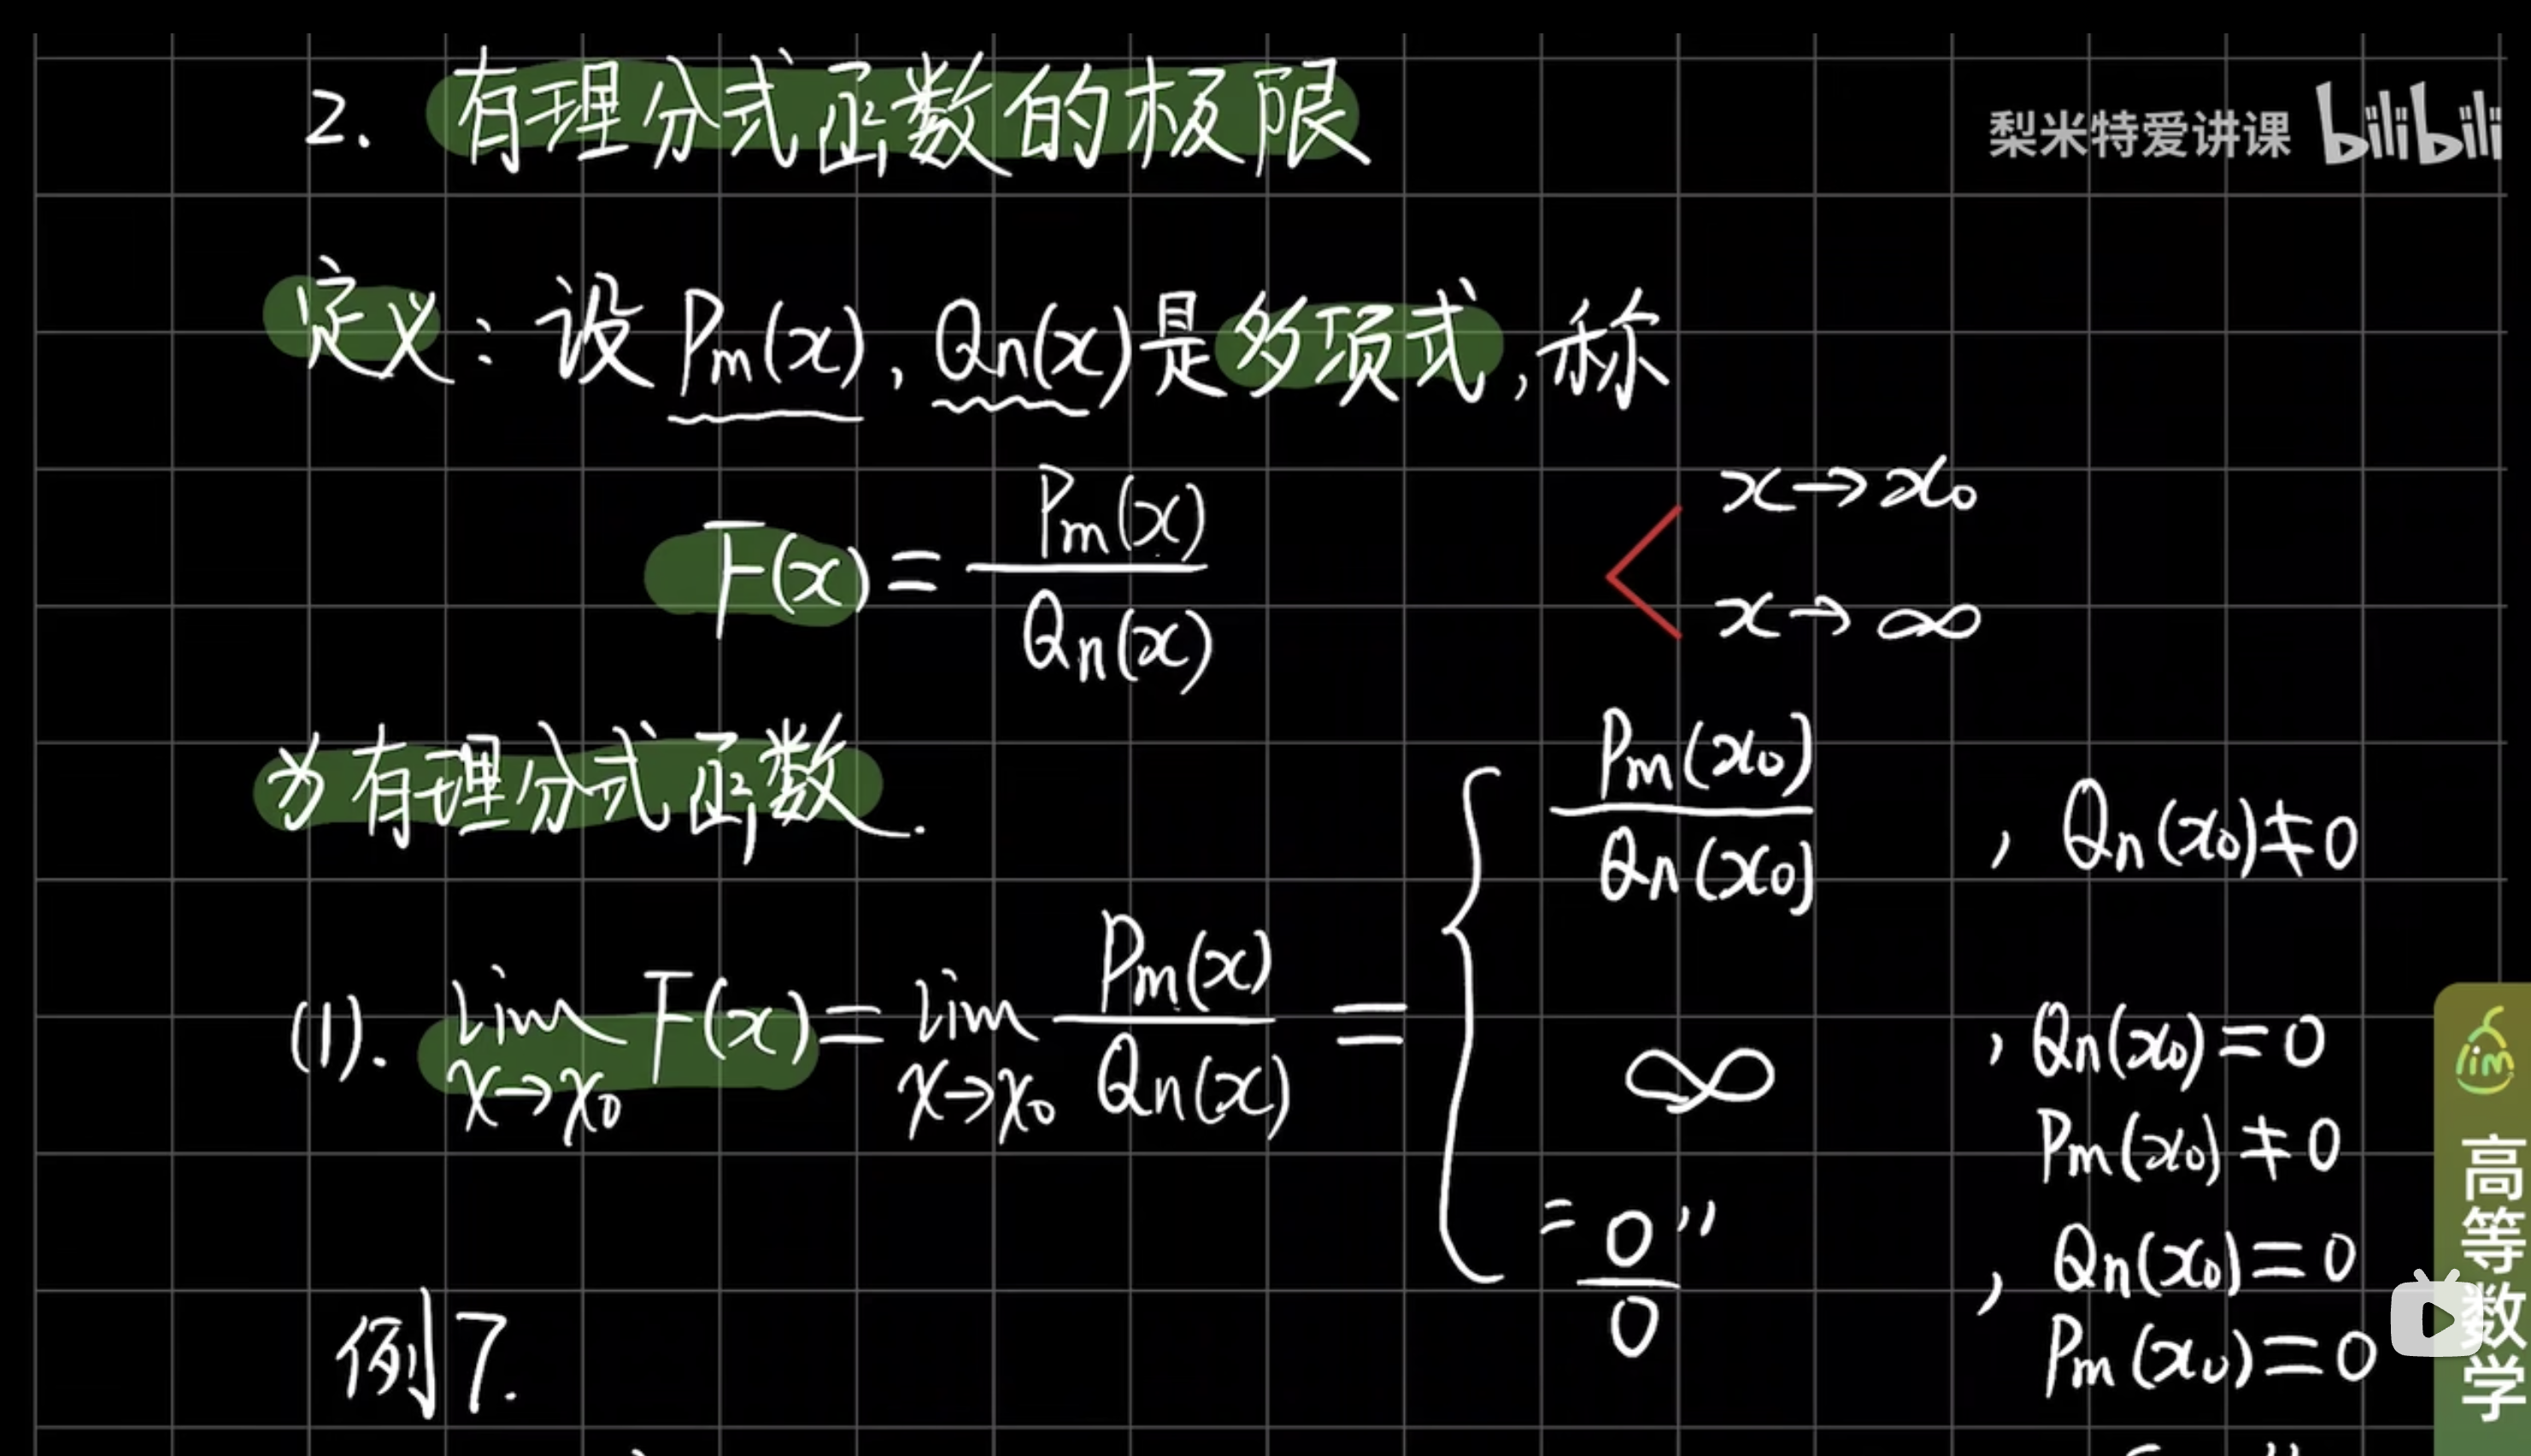 2. 有理分式函数的极限
梨米特爱讲课 bilibili
定义：设 Pm(x), Qn(x)是多项式,称
F(x) = Pm(x) / Qn(x)
x→x0
x→∞
为有理分式函数.
(1). lim x→x0 F(x) = lim x→x0 Pm(x) / Qn(x) = {
Pm(x0) / Qn(x0) , Qn(x0)≠0
∞ , Qn(x0)=0
Pm(x0)≠0
"0/0" , Qn(x0)=0
Pm(x0)=0
例7.
lim
高等数学